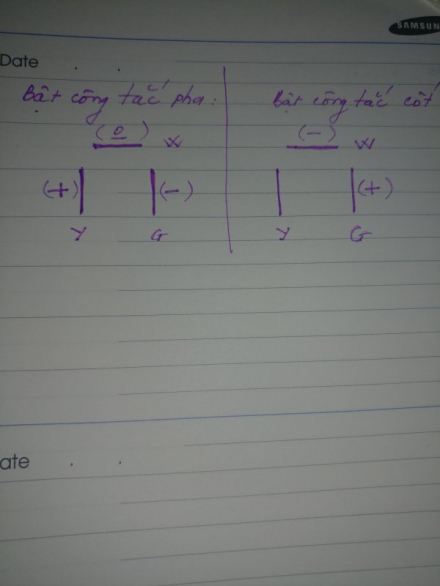 SAMSUN
Date
Bật công tắc pha:
(0) W
(+) (-)
Y G
Bật công tắc cốt
(-) W
(+)
Y G
ate